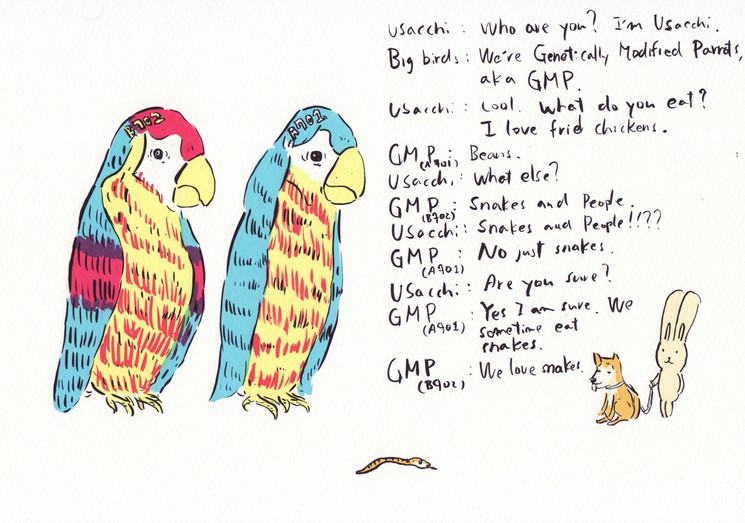 Usacchi : Who are you? I'm Usacchi.
Big birds : We're Genetically Modified Parrots,
aka GMP.
Usacchi : Cool. What do you eat?
I love frid chickens.
GMP (A901) : Beans.
Usacchi : What else?
GMP (B902) : Snakes and People.
Usacchi : Snakes and People!!??
GMP (A901) : No just snakes.
Usacchi : Are you sure?
GMP (A901) : Yes I am sure. We
sometime eat
snakes.
GMP (B902) : We love snakes.
B902
A901